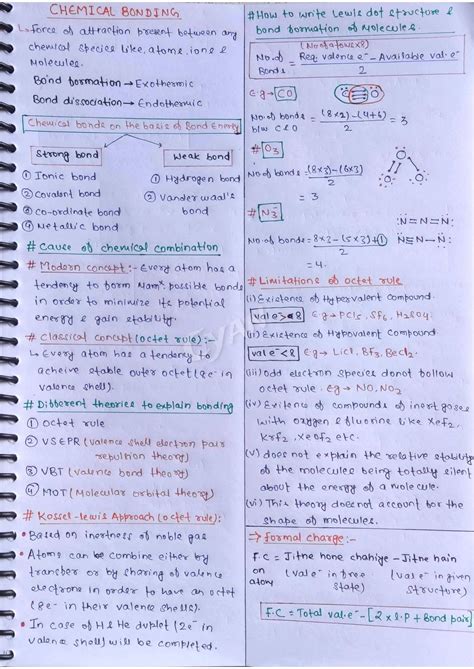 CHEMICAL BONDING
↳ Force of attraction present between any
chemical species like, atoms, ions &
Molecules.
Bond formation → Exothermic
Bond dissociation → Endothermic
Chemical bonds on the basis of Bond Energy
Strong bond
Weak bond
① Ionic bond
② Covalent bond
③ Co-ordinate bond
④ Metallic bond
① Hydrogen bond
② Vander waal's
bond
# Cause of chemical combination
# Modern concept :- Every atom has a
tendency to form Namˣ possible bonds
in order to minimize its potential
energy & gain stability.
# Classical concept (octet rule) :-
↳ Every atom has a tendency to
acheive stable outer octet (8e⁻ in
valence shell).
# Different theories to explain bonding
① Octet rule
② VSEPR (valence shell electron pair
repultion theory)
③ VBT (valence bond theory)
④ MOT (Molecular orbital theory)
# Kossel-lewis Approach (octet rule):
• Based on inertness of noble gas
• Atoms can be combine either by
transfer or by sharing of valence
electrons in order to have an octet
(8e⁻ in their valence shells).
• In case of H & He duplet (2e⁻ in
valence shell) will be completed.
# How to write Lewis dot structure &
bond formation of Molecules.
(No of atoms x8)
No. of Bonds = Req. valence e⁻ - Available val. e⁻ / 2
E.g → CO
C≡O
No. of bonds b/w C & O = (8x2) - (4+6) / 2 = 3
# O₃
No. of bonds = (8x3) - (6x3) / 2
= 3
# N₃⁻
No. of bonds = 8x3 - (5x3) + ① / 2
= 4.
N=N=N:
N≡N-N:
# Limitations of octet rule
(i) Existence of Hypervalent Compound
val e⁻ > 8 E.g → PCl₅, SF₆, H₂SO₄.
(ii) Existence of Hypovalent Compound
val e⁻ < 8 E.g → LiCl, BF₃, BeCl₂
(iii) odd electron species donot follow
octet rule. E.g → NO, NO₂
(iv) Exitence of compounds of inert gases
with oxygen & fluorine like XeF₂,
KrF₂, XeOF₂ etc.
(v) does not explain the relative stability
of the molecules being totally silent
about the energy of a molecule.
(vi) This theory does not account for the
shape of molecules.
⇒ Formal charge :-
F.C on atom = Jitne hone chahiye - Jitne hain
(val e⁻ in free state)
(val e⁻ in given structure)
F.C = Total val. e⁻ - [2 x l.P + Bond pair]